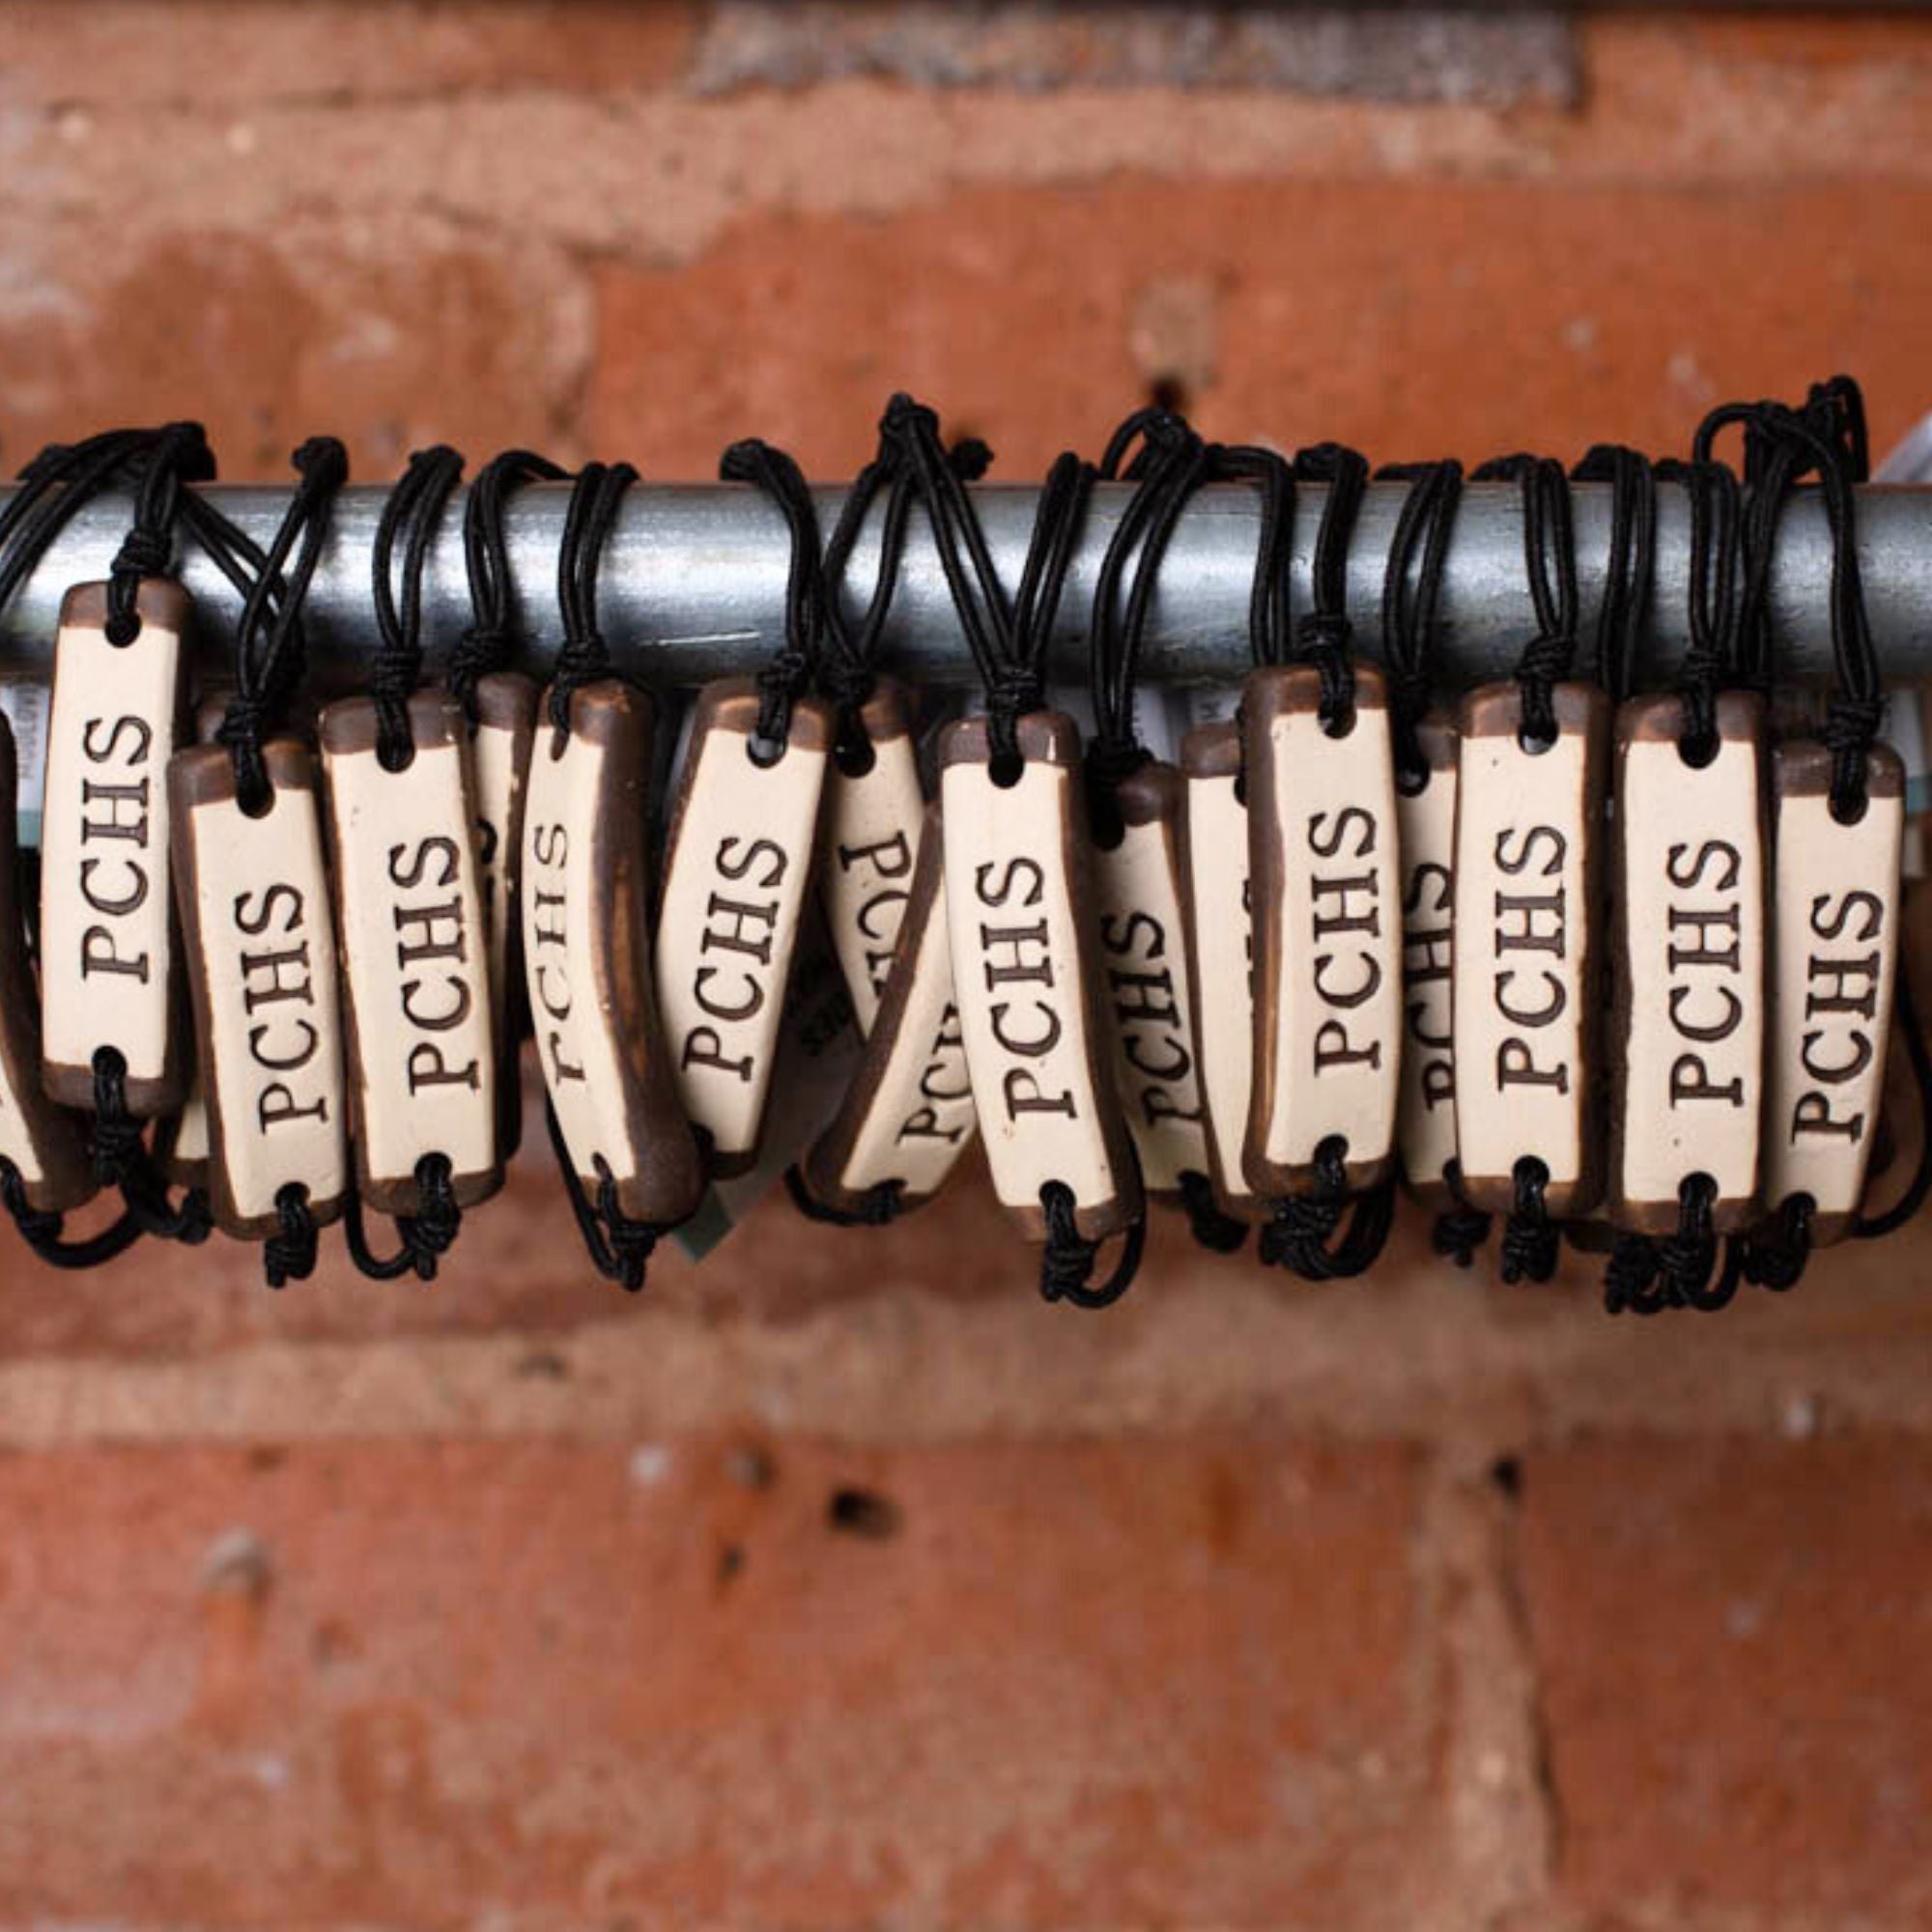 PCHS
PCHS
PCHS
PCHS
PCHS
PCH
PCH
PCHS
PCHS
PCHS
PCHS
PCHS
PCHS
PCHS